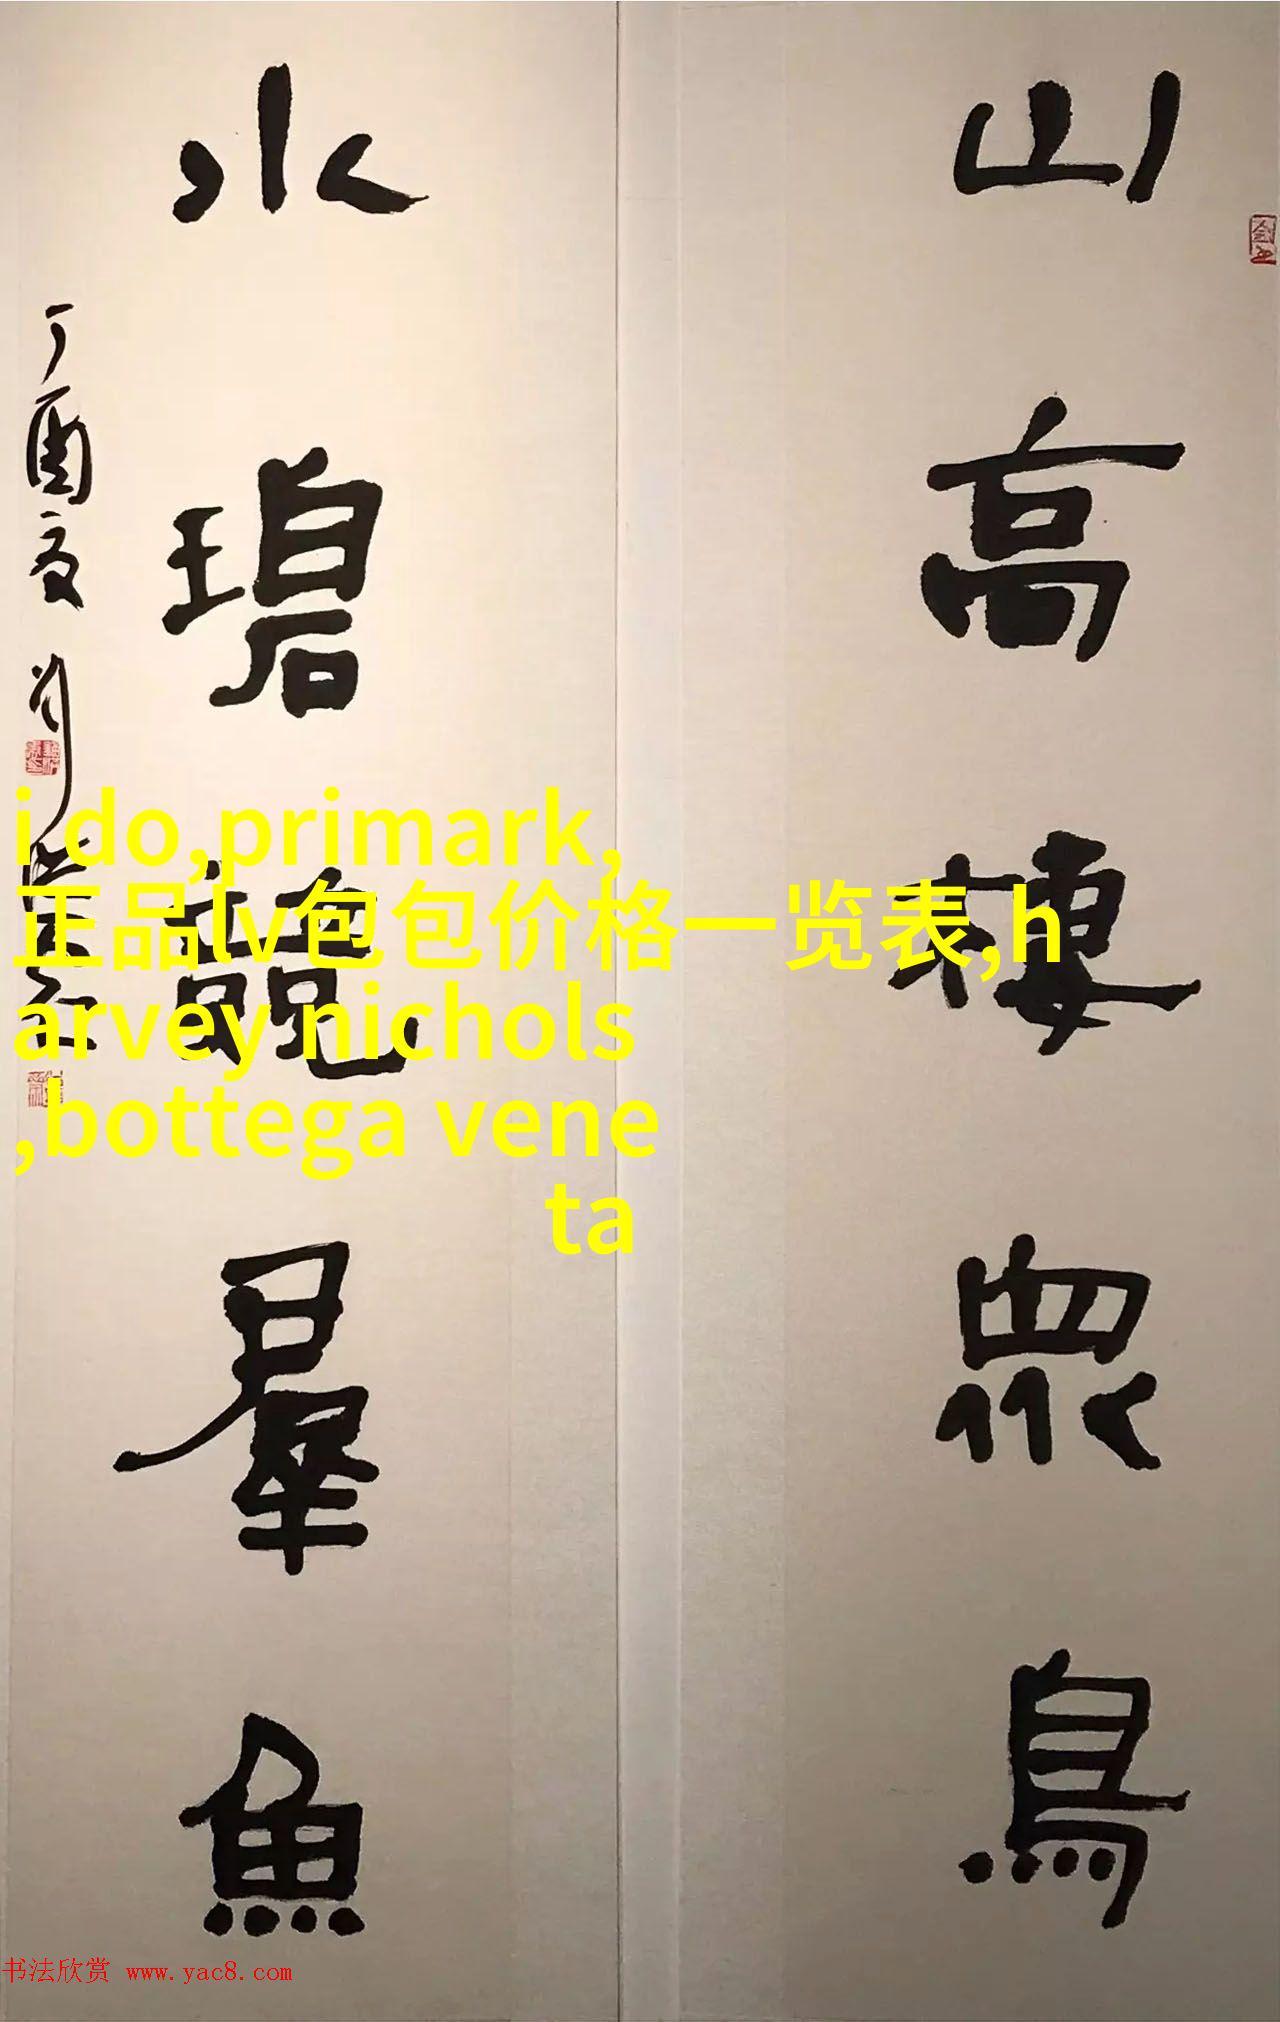 山高棲眾鳥
水碧競羣魚
丁酉夏
i do,primark,
正品lv包包价格一览表,h
arvey nichols
,bottega vene
ta
书法欣赏 www.yac8.com